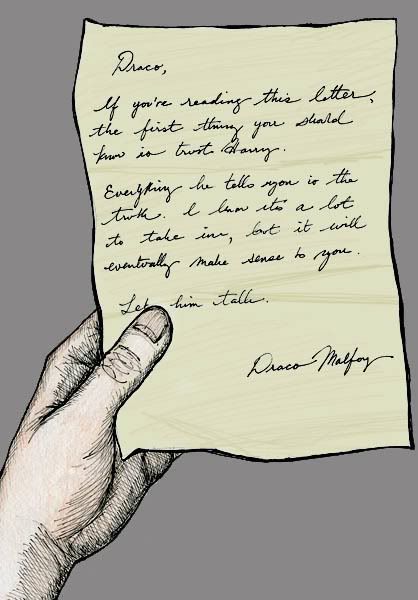 Draco,
If you're reading this letter,
the first thing you should
know is trust Harry.
Everything he tells you is the
truth. I know it's a lot
to take in, but it will
eventually make sense to you.
Let him talk.
Draco Malfoy